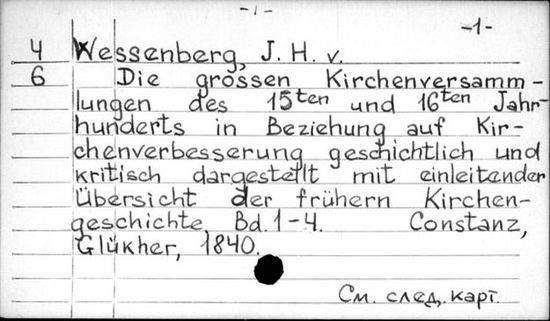 -1-
-1-
4 Wessenberg, J. H. v.
6 Die grossen Kirchenversamm-
lungen des 15ten und 16ten Jahr-
hunderts in Beziehung auf Kir-
chenverbesserung geschichtlich und
kritisch dargestellt mit einleitender
Übersicht der frühern Kirchen-
geschichte. Bd. 1-4. Constanz,
Glükher, 1840.
См. след. карт.